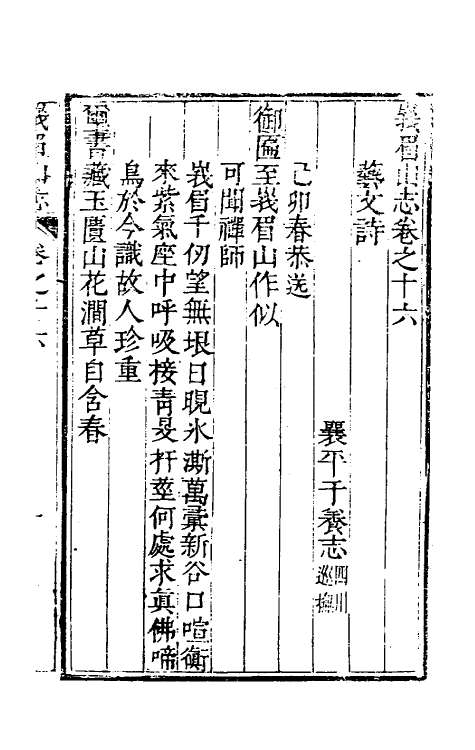 峩眉山志卷之十六
藝文詩
襄平于養志四川廵撫
己卯春恭送
御匾至峩眉山作似
可聞禪師
峩眉千仞望無垠日晛氷澌萬彙新谷口喧衡
來紫氣座中呼吸接靑旻扞莖何處求眞佛啼
鳥於今識故人珍重
璽書藏玉匱山花澗草自含春
峩眉山志
卷之十六
一